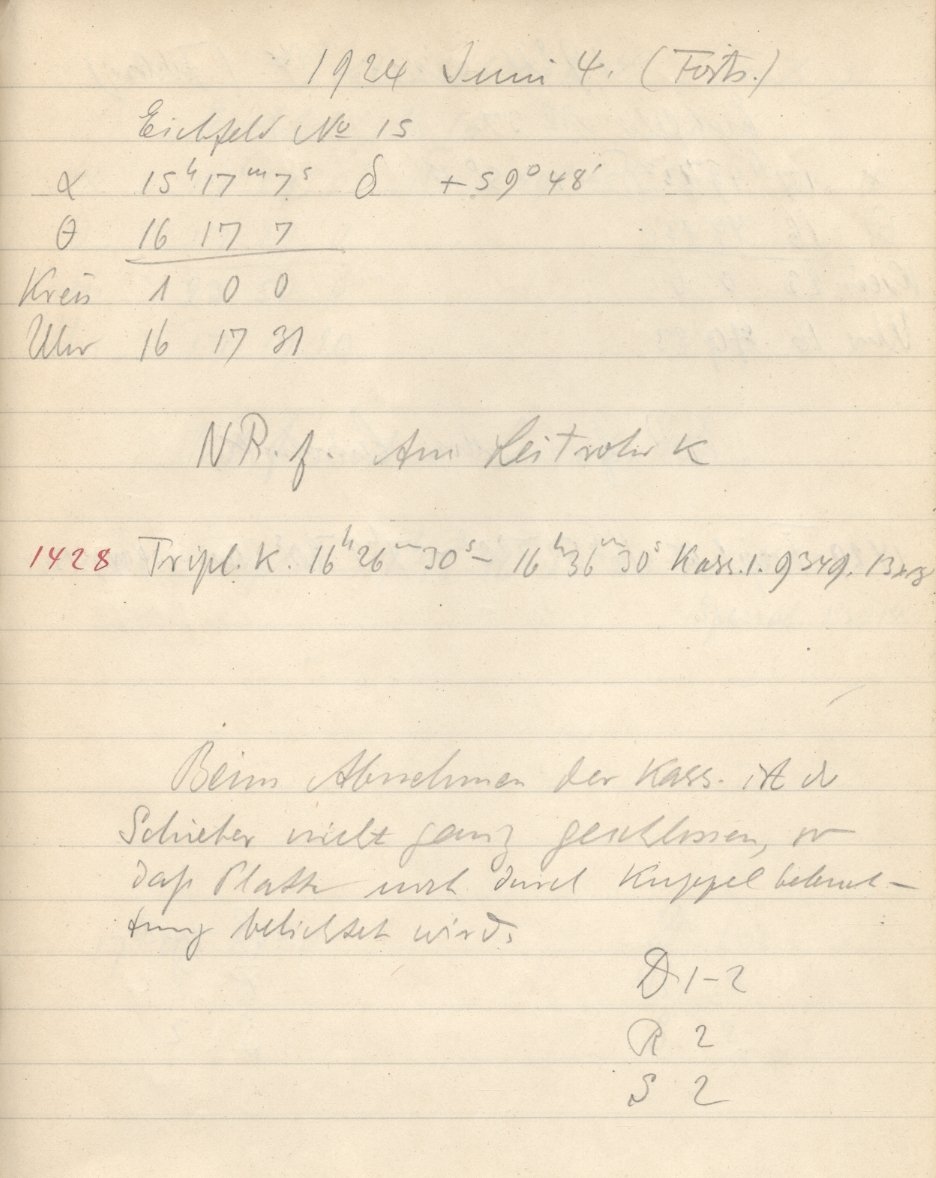 1924 Juni 4. (Forts.)
Eichfeld No 15
α 15ʰ17ᵐ7ˢ δ +59°48'
θ 16 17 7
Kreis 1 0 0
Uhr 16 17 31
N R. f. Am Leitrohr K
1428 Tripl. K. 16ʰ26ᵐ30ˢ – 16ʰ36ᵐ30ˢ Kass. 1. 9349.
Beim Abnehmen der Kass. ist de
Schieber nicht ganz geschlossen, so
daß Platte noch durch Kuppelbeleuch-
tung belichtet wird.
D 1-2
R 2
S 2